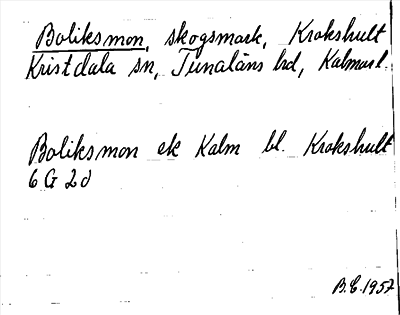 Boliksmon, skogsmark, Krokshult
Kristdala sn, Tunaläns hd, Kalmar l.
Boliksmon ek Kalm bl. Krokshult
6 G 2 d
B.E. 1957